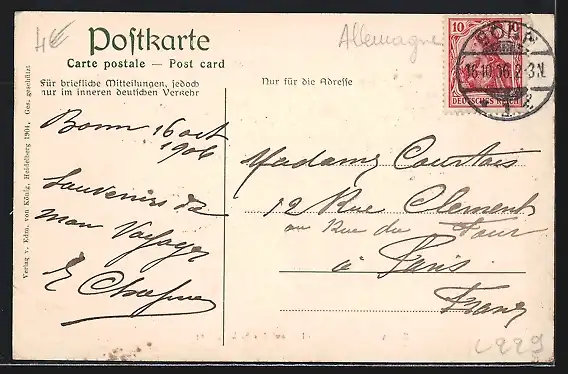 4€
Postkarte
Carte postale — Post card
Für briefliche Mitteilungen, jedoch
nur im inneren deutschen Verkehr
Nur für die Adresse
Allemagne
10
DEUTSCHES REICH
BONN
16.10.06. 2-3N.
Verlag v. Edm. von König, Heidelberg 1904. Ges. geschützt
Bonn 16 oct
1906
Souvenirs de
mon Voyage
Madame Courtois
12 Rue Clement
ou Rue du Four
à Paris